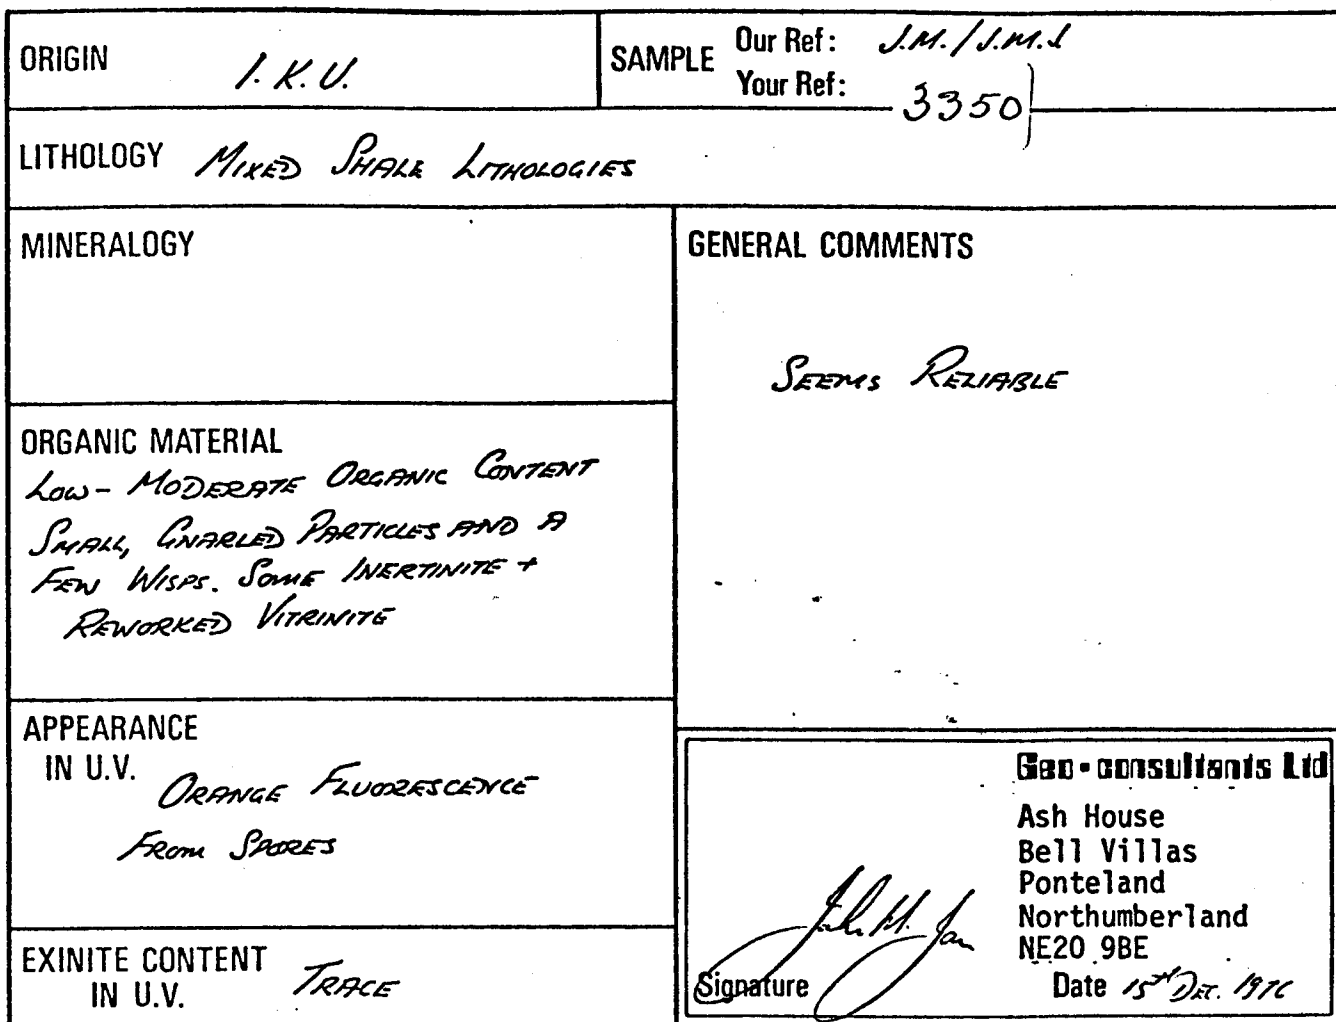 ORIGIN I.K.U.
SAMPLE Our Ref: J.M./J.M.1
Your Ref: 3350
LITHOLOGY MIXED SHALE LITHOLOGIES
MINERALOGY
GENERAL COMMENTS
SEEMS RELIABLE
ORGANIC MATERIAL
LOW - MODERATE ORGANIC CONTENT
SMALL, GNARLED PARTICLES AND A
FEW WISPS. SOME INERTINITE +
REWORKED VITRINITE
APPEARANCE
IN U.V.
ORANGE FLUORESCENCE
FROM SPORES
EXINITE CONTENT
IN U.V.
TRACE
Geo-consultants Ltd
Ash House
Bell Villas
Ponteland
Northumberland
NE20 9BE
Signature
Date 15th DEC. 1976